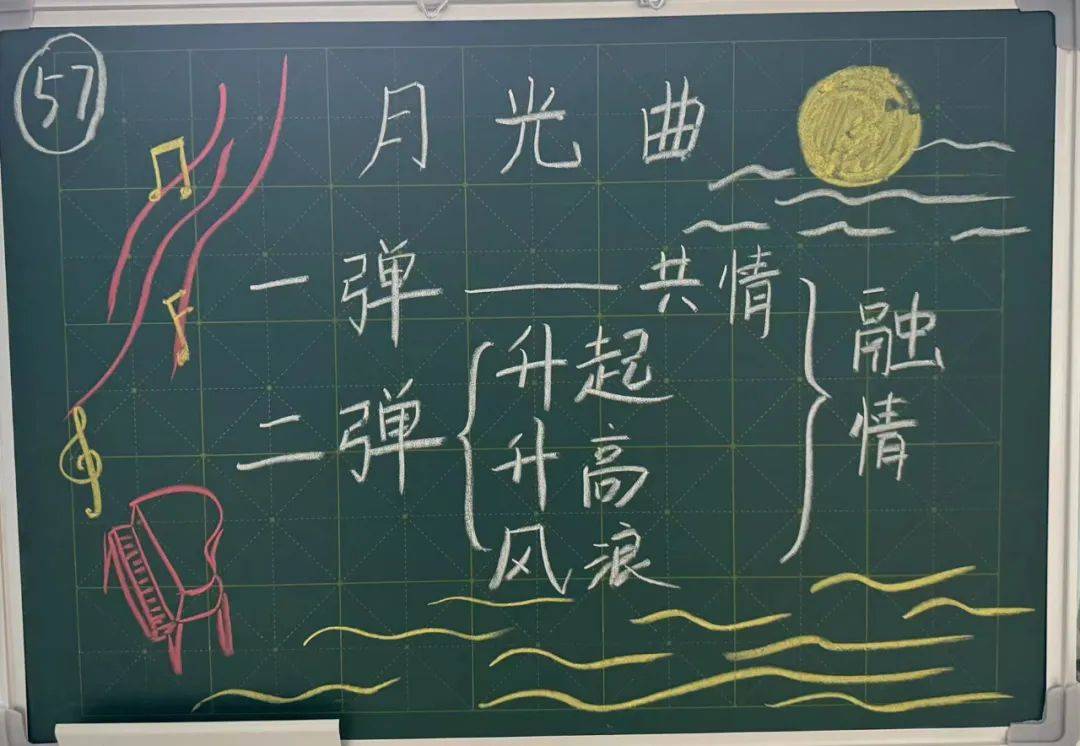 57
月光曲
一弹——共情
升起
二弹
升高
风浪
融情